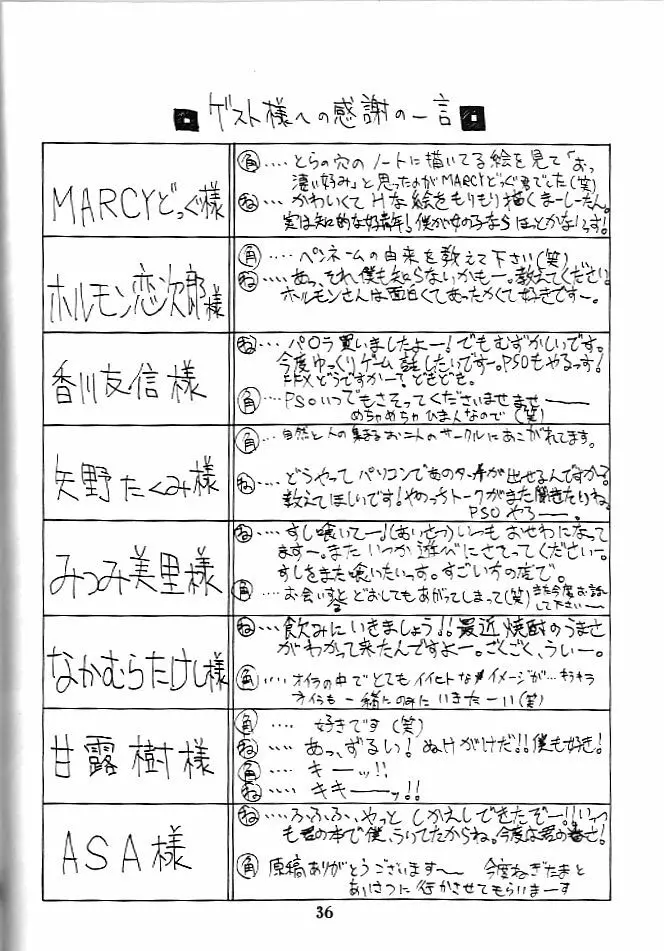 ゲスト様への感謝の一言
MARCYどっぐ様
角‥‥とらの穴のノートに描いてる絵を見て「おっ
凄い好み」と思ったのがMARCYどっぐ君でした(笑)
ね‥‥かわいくてHな絵をもりもり描くまーしーたん。
実は知的な好青年!僕が女の子ならほっとかないっす!
ホルモン恋次郎様
角‥‥ペンネームの由来を教えて下さい(笑)
ね‥‥あっ、それ僕も知らないかもー。教えてください。
ホルモンさんは面白くてあったかくて好きですー。
香川友信様
ね‥‥パロラ買いましたよー!でもむずかしいです。
今度ゆっくりゲーム話したいですー。PSOもやるっす!
FFXどうですかー?どもども。
角‥‥PSOいつでもさそってくださいませませー
めちゃめちゃひまんなので(笑)
矢野たくみ様
角‥‥自然と人の集まるお二人のサークルにあこがれてます。
ね‥‥どうやってパソコンであのタッチが出せるんですか?
教えてほしいです!やのっちトークがまた聞きたいね。
PSOやろー。
みつみ美里様
ね‥‥すし喰いてー!(あいさつ)いつもおせわになって
ますー。またいつか遊びにさそってくださいー。
すしをまた喰いたいっす。すごい方の店で。
角‥‥お会いすると どおしてもあがってしまって(笑)また今度お話
して下さい〜
なかむらたけし様
ね‥‥飲みにいきましょう!!最近焼酎のうまさ
がわかって来たんですよー。ごくごく、うぃー。
角‥‥オイラの中でとてもイイヒトなイメージが‥‥キラキラ
オイラも一緒にのみにいきたーい(笑)
甘露樹様
角‥‥好きです(笑)
ね‥‥あっ、ずるい!ぬけがけだ!!僕も好き!
角‥‥キーッ!!
ね‥‥キキーッ!!
ASA様
ね‥‥ふふふ、やっとしかえしできたぞー!!いっつ
も君の本で僕、ういてたからね。今度は君の番さ!
角 原稿ありがとうございます〜 今度ねぎたまと
あいさつに行かさせてもらいまーす
36